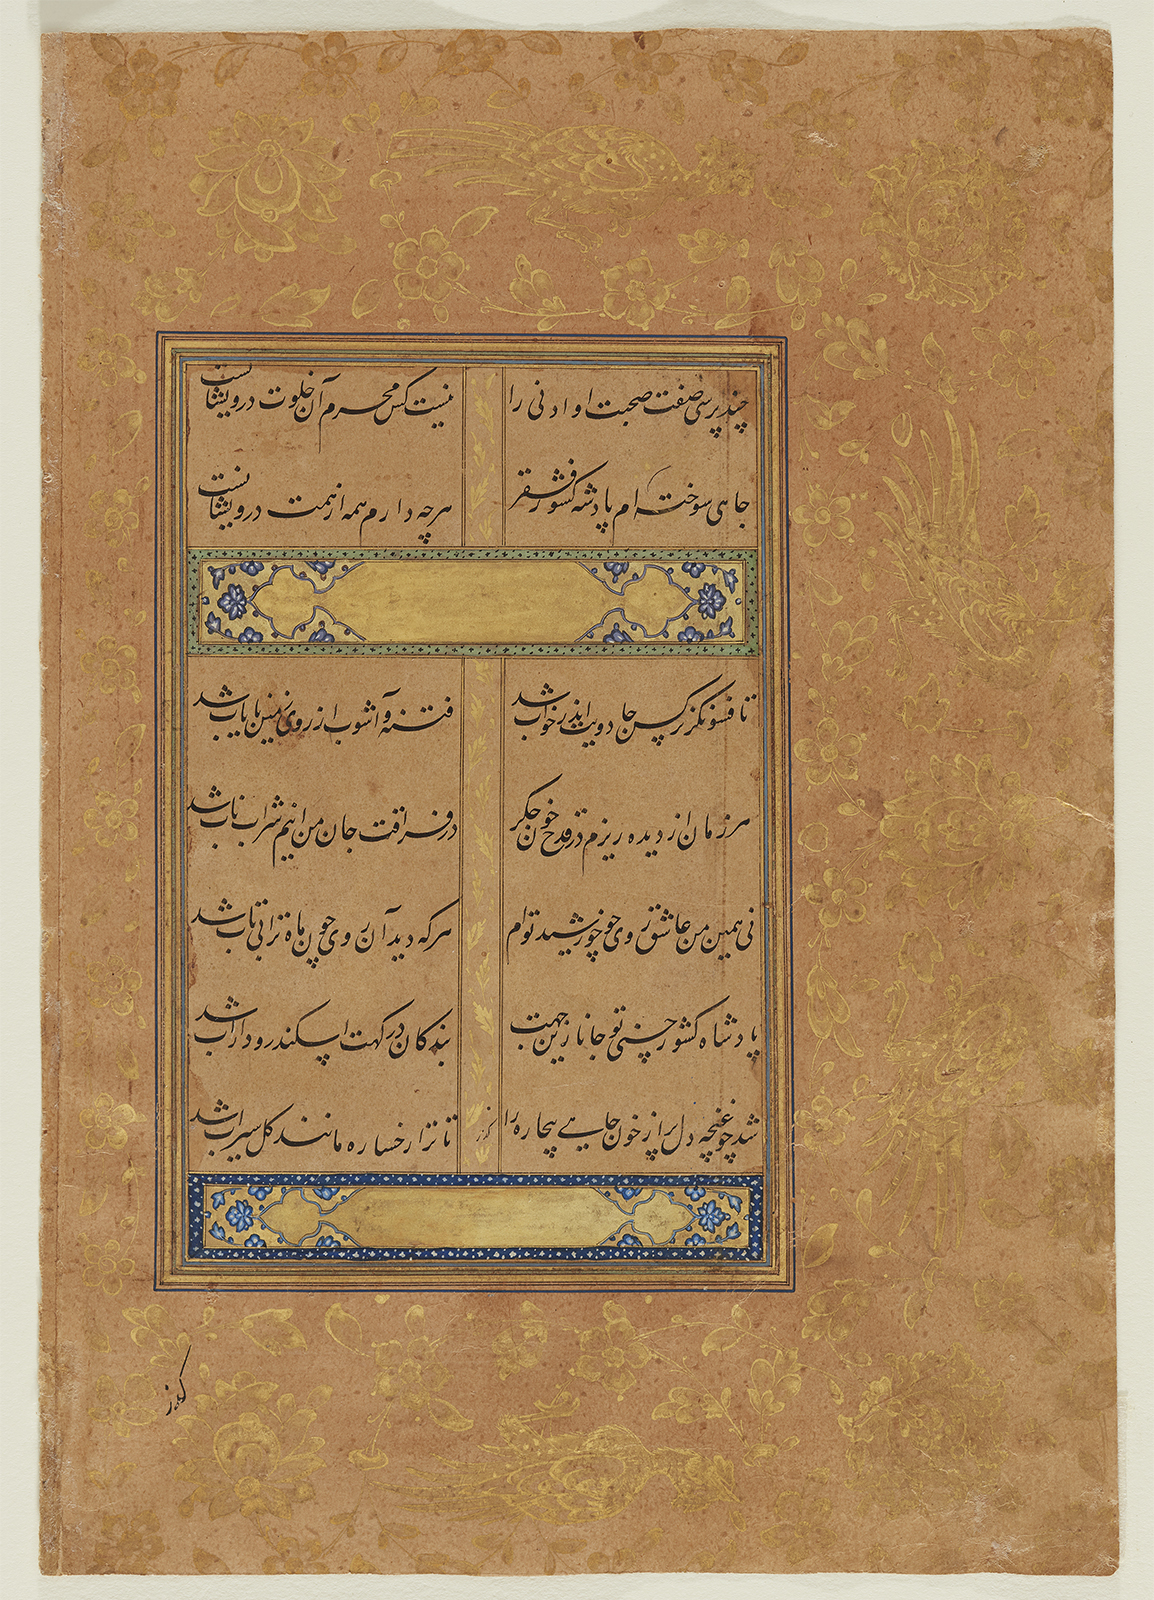 چند پرسی صفت صحبت او ادنی را نیست کس محرم آن خلوت درویشانست
جاهی سوخته ام پادشه کشور فقر هرچه دارم همه از همت درویشانست
تا فسونگر نرگس جادویت اندر خواب شد فتنه و آشوب از روی زمین نایاب شد
هر زمان از دیده ریزم در قدح خون جگر در فراقت جان من اینم شراب ناب شد
نی همین من عاشق روی چو خورشید توام هرکه دید آن روی چون ماه ترا بی تاب شد
پادشاه کشور حسنی تو جانا زین جهت بندگان درگهت اسکندر و داراب شد
شد چو غنچه دل پر از خون جاهی بیچاره را تا ترا رخساره مانند گل سیراب شد